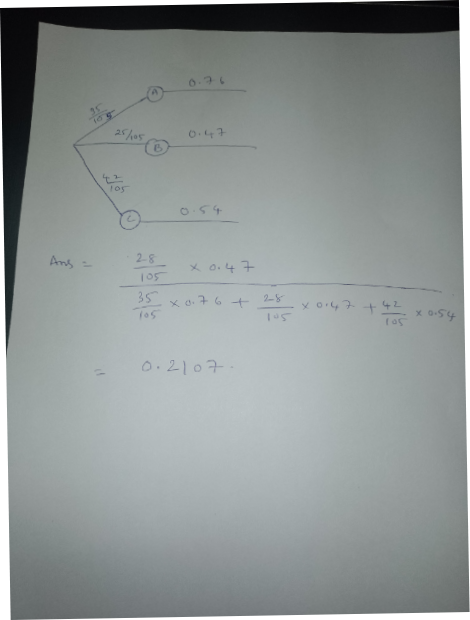 A 0.76
35/105
25/105 B 0.47
42/105
C 0.54
Ans = 28/105 × 0.47
35/105 × 0.76 + 28/105 × 0.47 + 42/105 × 0.54
= 0.2107.